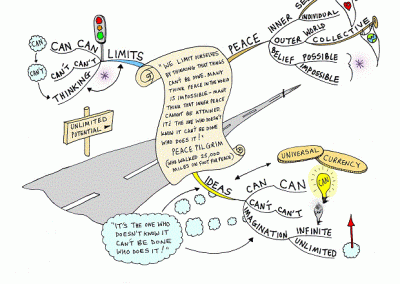 CAN
CAN CAN
CAN'T
CAN'T CAN'T
THINKING
LIMITS
"WE LIMIT OURSELVES
BY THINKING THAT THINGS
CAN'T BE DONE. MANY
THINK PEACE IN THE WORLD
IS IMPOSSIBLE - MANY
THINK THAT INNER PEACE
CANNOT BE ATTAINED.
IT'S THE ONE WHO DOESN'T
KNOW IT CAN'T BE DONE
WHO DOES IT!"
PEACE PILGRIM
(WHO WALKED 25,000
MILES ON FOOT FOR PEACE)
PEACE
INNER
INDIVIDUAL
OUTER WORLD
COLLECTIVE
BELIEF POSSIBLE
IMPOSSIBLE
UNLIMITED
POTENTIAL
UNIVERSAL
CURRENCY
IDEAS
CAN CAN
CAN
CAN'T CAN'T
IMAGINATION INFINITE
UNLIMITED
"IT'S THE ONE WHO
DOESN'T KNOW IT
CAN'T BE DONE
WHO DOES IT!"